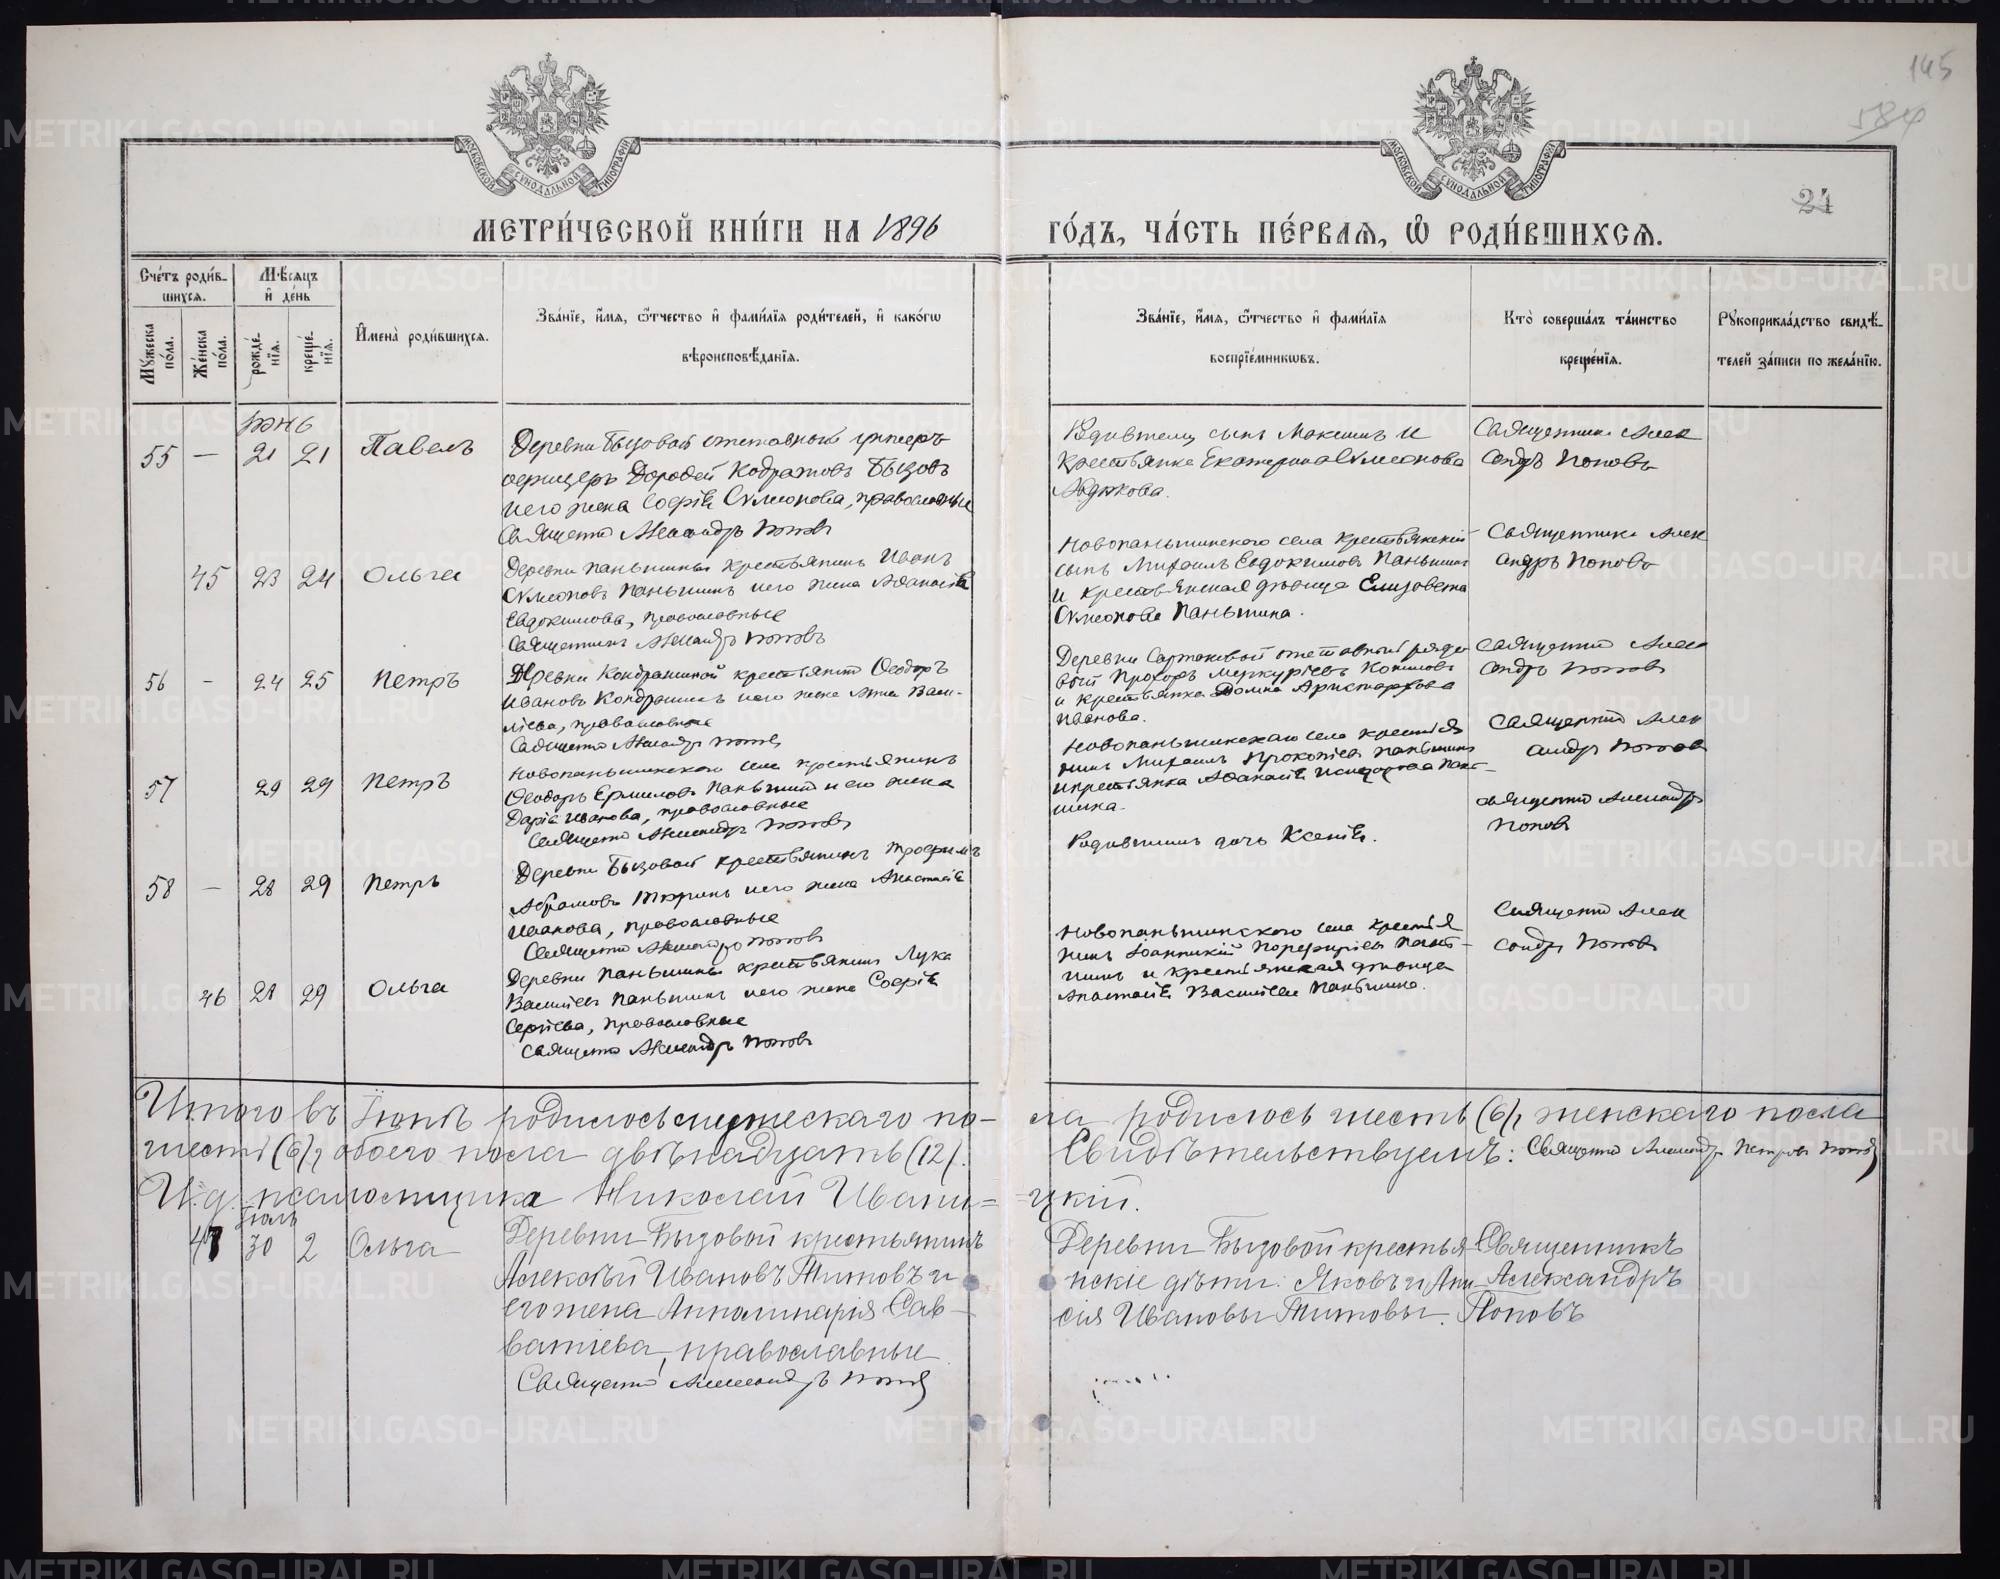 145
584
24
МОСКОВСКОЙ СѴНОДАЛЬНОЙ ТИПОГРАФІИ
МОСКОВСКОЙ СѴНОДАЛЬНОЙ ТИПОГРАФІИ
МЕТРИ́ЧЕСКОЙ КНИ́ГИ НА 1896
ГО́ДЪ, ЧА́СТЬ ПЕ́РВАЯ, Ѡ҆ РОДИ́ВШИХСЯ.
Сче́тъ роди́в-
шихся.
Мѣ́сяцъ
и҆ де́нь
Му́жеска по́ла.
Же́нска по́ла.
рожде́-нїя.
креще́-нїя.
И҆мена̀ роди́вшихся.
Зва́нїе, и҆́мя, ѻ҆́тчество и҆ фами́лїя роди́телей, и҆ како́гѡ
вѣроисповѣ́данїя.
Зва́нїе, и҆́мя, ѻ҆́тчество и҆ фами́лїя
воспрїе́мникѡвъ.
Кто̀ соверша́лъ та́инство
креще́нїя.
Рꙋкоприкла́дство свидѣ́-
телей за́писи по жела́нїю.
55 — 21 21 Павелъ
Деревни Бызовой отставной унтеръ
офицеръ Дорофей Кодратовъ Бызовъ
и его жена Софія Симеонова, православные
Священникъ Александръ Поповъ
сынъ Максимъ и
крестьянка Екатерина Симеонова
Священникъ Алек
сандръ Поповъ
45 23 24 Ольга
Деревни Паньшины крестьянинъ Иванъ
Симеоновъ Паньшинъ и его жена Афанасія
Евдокимова, православные
Священникъ Александръ Поповъ
Новопаньшинскаго села крестьянскій
сынъ Михаилъ Евдокимовъ Паньшинъ
и крестьянская дѣвица Елизавета
Симеонова Паньшина.
Священникъ Алек
сандръ Поповъ
56 — 24 25 Петръ
Деревни Кондрашиной крестьянинъ Ѳеодоръ
Ивановъ Кондрашинъ и его жена Анна Васи-
ліева, православные
Священникъ Александръ Поповъ
Деревни отставной рядо
вой Прохоръ Меркуріевъ
и крестьянка Домна Аристархова
Иванова.
Священникъ Алек
сандръ Поповъ
57 29 29 Петръ
Новопаньшинскаго села крестьянинъ
Ѳеодоръ Ермиловъ Паньшинъ и его жена
Дарія Иванова, православные
Священникъ Александръ Поповъ
Новопаньшинскаго села крестья
нинъ Михаилъ Прокопіевъ Паньшинъ
и крестьянка Афанасія Исидорова Пань-
шина.
Священникъ Алек
сандръ Поповъ
58 — 28 29 Петръ
Деревни Бызовой крестьянинъ Трофимъ
Абрамовъ и его жена Анастасія
Иванова, православные
Священникъ Александръ Поповъ
дочь Ксенія.
Священникъ Александръ
Поповъ
46 28 29 Ольга
Деревни Паньшины крестьянинъ Лука
Васильевъ Паньшинъ и его жена Софія
Сергіева, православные
Священникъ Александръ Поповъ
Новопаньшинскаго села крестья
нинъ Іоанникій Порфиріевъ Пань-
шинъ и крестьянская дѣвица
Анастасія Васильева Паньшина.
Священникъ Алек
сандръ Поповъ
Итого въ Іюнѣ родилось мужескаго по-
ла родилось шесть (6), женскаго пола
шесть (6), обоего пола двѣнадцать (12).
Свидѣтельствуемъ: Священникъ Александръ Петровъ Поповъ
И. д. псаломщика Николай Ивани-
=цкій.
Іюль
47 30 2 Ольга
Деревни Бызовой крестьянинъ
Алексѣй Ивановъ Титовъ и
его жена Апполинарія Сав-
ватіева, православные
Священникъ Александръ Поповъ
Деревни Бызовой крестья-
нскіе дѣти: Яковъ и Ани-
сія Ивановы Титовы.
Священникъ
Александръ
Поповъ
METRIKI.GASO-URAL.RU